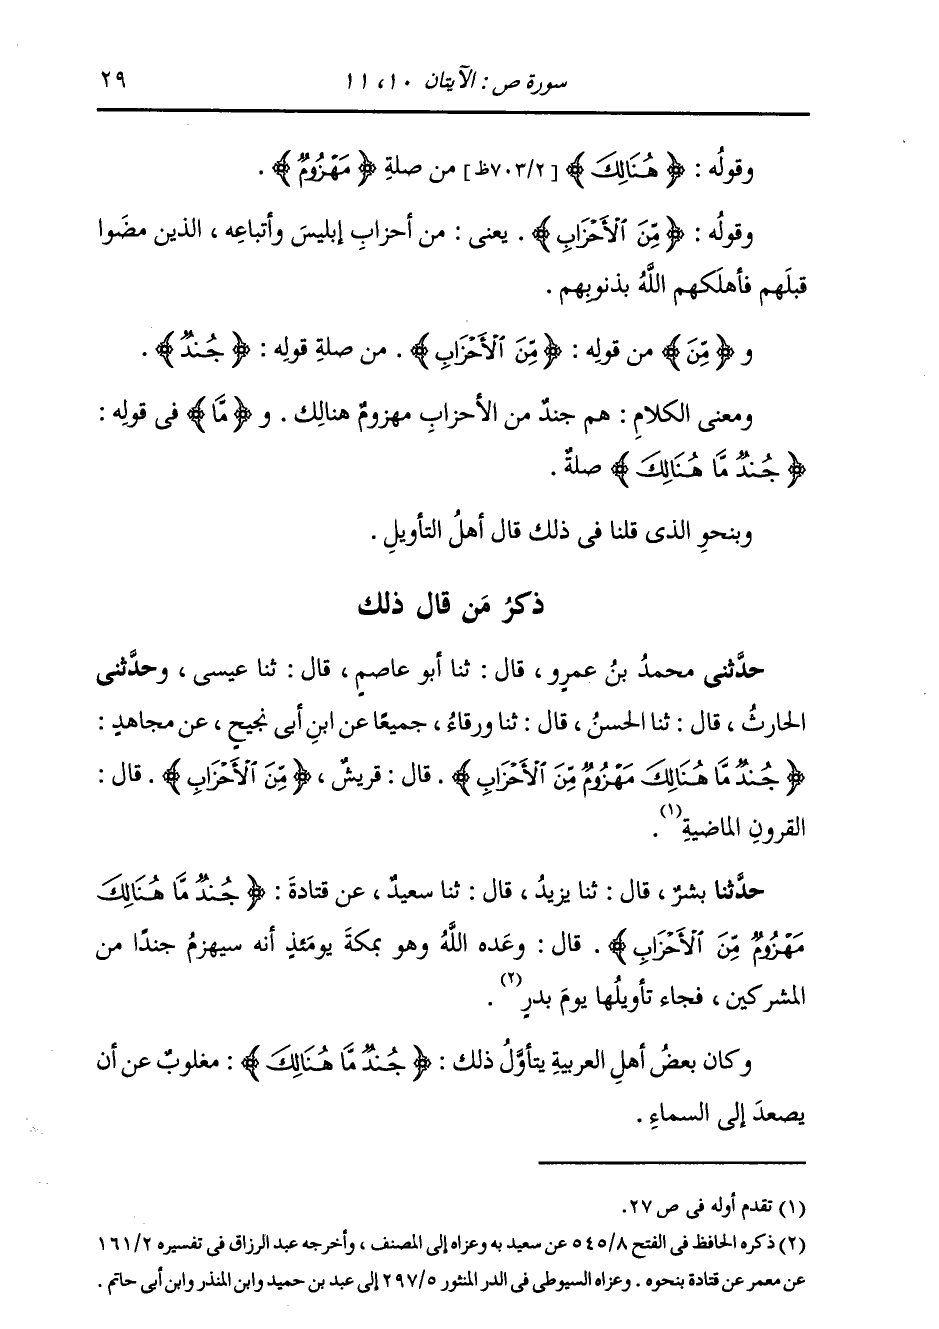 سورة ص : الآيتان ١٠، ١١ ٢٩
وقولُه : ﴿ هُنَالِكَ ﴾ [٧٠٣/٢ظ] من صلةِ ﴿ مَهْزُومٌ ﴾ .
وقولُه : ﴿ مِّنَ ٱلْأَحْزَابِ ﴾ . يعنى : من أحزابِ إبليسَ وأتباعِه ، الذين مضَوا
قبلَهم فأهلَكهم اللَّهُ بذنوبِهم .
و ﴿ مِّنَ ﴾ من قولِه : ﴿ مِّنَ ٱلْأَحْزَابِ ﴾ . من صلةِ قولِه : ﴿ جُندٌ ﴾ .
ومعنى الكلامِ : هم جندٌ من الأحزابِ مهزومٌ هنالِك . و ﴿ مَّا ﴾ فى قولِه :
﴿ جُندٌ مَّا هُنَالِكَ ﴾ صلةٌ .
وبنحوِ الذى قلنا فى ذلك قال أهلُ التأويلِ .
ذكرُ مَن قال ذلك
حدَّثنى محمدُ بنُ عمرٍو ، قال : ثنا أبو عاصمٍ ، قال : ثنا عيسى ، وحدَّثنى
الحارثُ ، قال : ثنا الحسنُ ، قال : ثنا ورقاءُ ، جميعًا عن ابنِ أبى نجيحٍ ، عن مجاهدٍ :
﴿ جُندٌ مَّا هُنَالِكَ مَهْزُومٌ مِّنَ ٱلْأَحْزَابِ ﴾ . قال : قريشٌ ، ﴿ مِّنَ ٱلْأَحْزَابِ ﴾ . قال :
القرونِ الماضيةِ(١) .
حدَّثنا بشرٌ ، قال : ثنا يزيدُ ، قال : ثنا سعيدٌ ، عن قتادةَ : ﴿ جُندٌ مَّا هُنَالِكَ
مَهْزُومٌ مِّنَ ٱلْأَحْزَابِ ﴾ . قال : وعَده اللَّهُ وهو بمكةَ يومَئذٍ أنه سيهزمُ جندًا من
المشركين ، فجاء تأويلُها يومَ بدرٍ(٢) .
وكان بعضُ أهلِ العربيةِ يتأوَّلُ ذلك : ﴿ جُندٌ مَّا هُنَالِكَ ﴾ : مغلوبٌ عن أن
يصعدَ إلى السماءِ .
(١) تقدم أوله فى ص ٢٧.
(٢) ذكره الحافظ فى الفتح ٥٤٥/٨ عن سعيد به وعزاه إلى المصنف ، وأخرجه عبد الرزاق فى تفسيره ١٦١/٢
عن معمر عن قتادة بنحوه . وعزاه السيوطى فى الدر المنثور ٢٩٧/٥ إلى عبد بن حميد وابن المنذر وابن أبى حاتم .